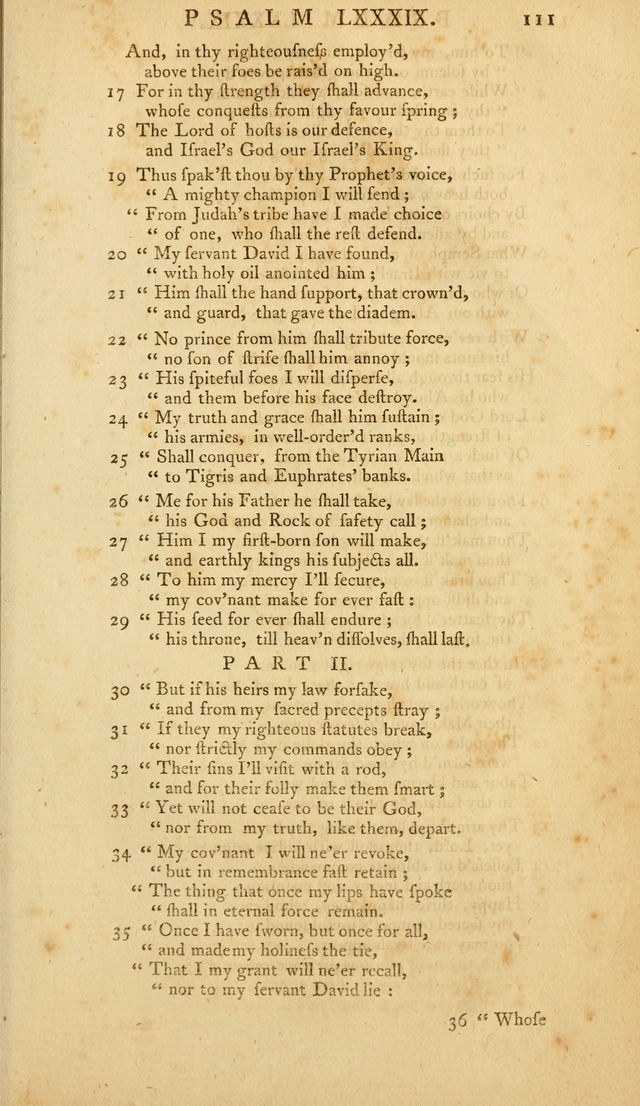 PSALM LXXXIX. 111
And, in thy righteouſneſs employ'd,
above their foes be rais'd on high.
17 For in thy ſtrength they ſhall advance,
whoſe conqueſts from thy favour ſpring ;
18 The Lord of hoſts is our defence,
and Iſrael's God our Iſrael's King.
19 Thus ſpak'ſt thou by thy Prophet's voice,
“ A mighty champion I will ſend ;
“ From Judah's tribe have I made choice
“ of one, who ſhall the reſt defend.
20 “ My ſervant David I have found,
“ with holy oil anointed him ;
21 “ Him ſhall the hand ſupport, that crown'd,
“ and guard, that gave the diadem.
22 “ No prince from him ſhall tribute force,
“ no ſon of ſtrife ſhall him annoy ;
23 “ His ſpiteful foes I will diſperſe,
“ and them before his face deſtroy.
24 “ My truth and grace ſhall him ſuſtain ;
“ his armies, in well-order'd ranks,
25 “ Shall conquer, from the Tyrian Main
“ to Tigris and Euphrates' banks.
26 “ Me for his Father he ſhall take,
“ his God and Rock of ſafety call ;
27 “ Him I my firſt-born ſon will make,
“ and earthly kings his ſubjects all.
28 “ To him my mercy I'll ſecure,
“ my cov'nant make for ever faſt :
29 “ His ſeed for ever ſhall endure ;
“ his throne, till heav'n diſſolves, ſhall laſt.
PART II.
30 “ But if his heirs my law forſake,
“ and from my ſacred precepts ſtray ;
31 “ If they my righteous ſtatutes break,
“ nor ſtrictly my commands obey ;
32 “ Their ſins I'll viſit with a rod,
“ and for their folly make them ſmart ;
33 “ Yet will not ceaſe to be their God,
“ nor from my truth, like them, depart.
34 “ My cov'nant I will ne'er revoke,
“ but in remembrance faſt retain ;
“ The thing that once my lips have ſpoke
“ ſhall in eternal force remain.
35 “ Once I have ſworn, but once for all,
“ and made my holineſs the tie,
“ That I my grant will ne'er recall,
“ nor to my ſervant David lie :
36 “ Whoſe